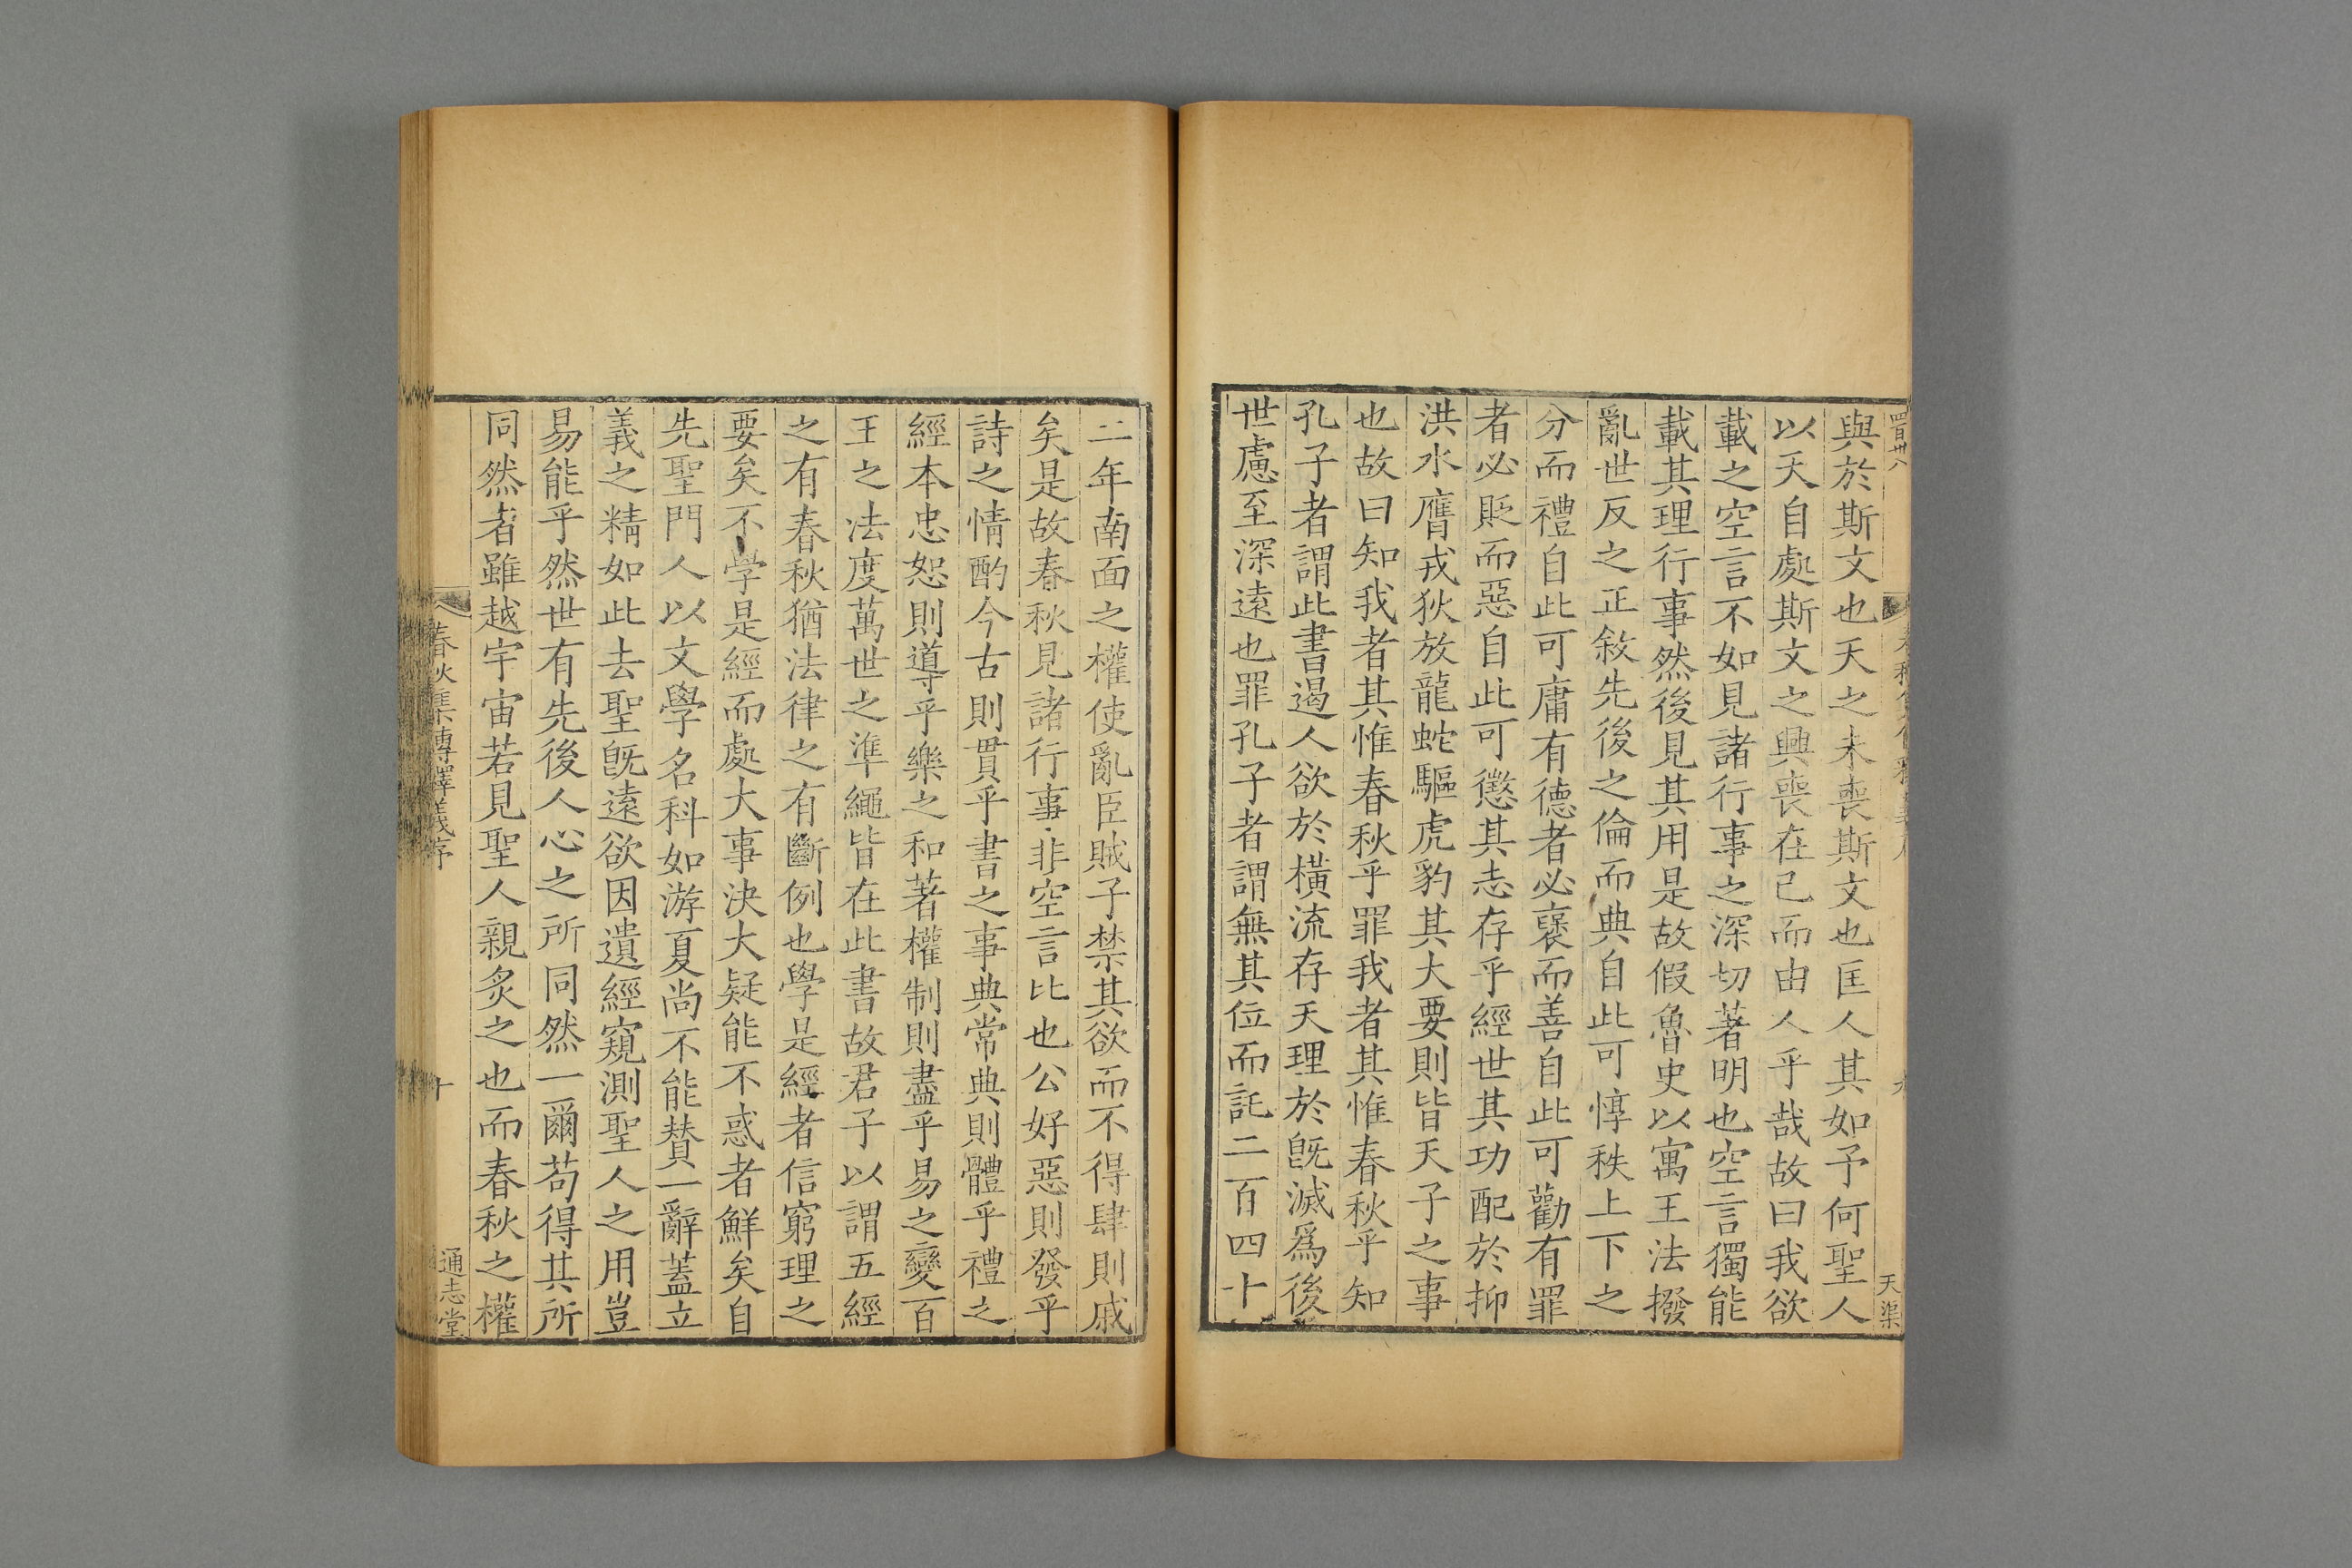 四百卅八
天渠
與於斯文也天之未喪斯文也匡人其如予何聖人
以天自處斯文之興喪在己而由人乎哉故曰我欲
載之空言不如見諸行事之深切著明也空言獨能
載其理行事然後見其用是故假魯史以寓王法撥
亂世反之正敘先後之倫而典自此可惇秩上下之
分而禮自此可庸有德者必褒而善自此可勸有罪
者必貶而惡自此可懲其志存乎經世其功配於抑
洪水膺戎狄放龍蛇驅虎豹其大要則皆天子之事
也故曰知我者其惟春秋乎罪我者其惟春秋乎知
孔子者謂此書遏人欲於橫流存天理於旣滅爲後
世慮至深遠也罪孔子者謂無其位而託二百四十
二年南面之權使亂臣賊子禁其欲而不得肆則戚
矣是故春秋見諸行事非空言比也公好惡則發乎
詩之情酌今古則貫乎書之事典常典則體乎禮之
經本忠恕則導乎樂之和著權制則盡乎易之變百
王之法度萬世之準繩皆在此書故君子以謂五經
之有春秋猶法律之有斷例也學是經者信窮理之
要矣不学是經而處大事決大疑能不惑者鮮矣自
先聖門人以文學名科如游夏尚不能贊一辭蓋立
義之精如此去聖旣遠欲因遺經窺測聖人之用豈
易能乎然世有先後人心之所同然一爾苟得其所
同然者雖越宇宙若見聖人親炙之也而春秋之權
春秋集傳釋義序
十
通志堂